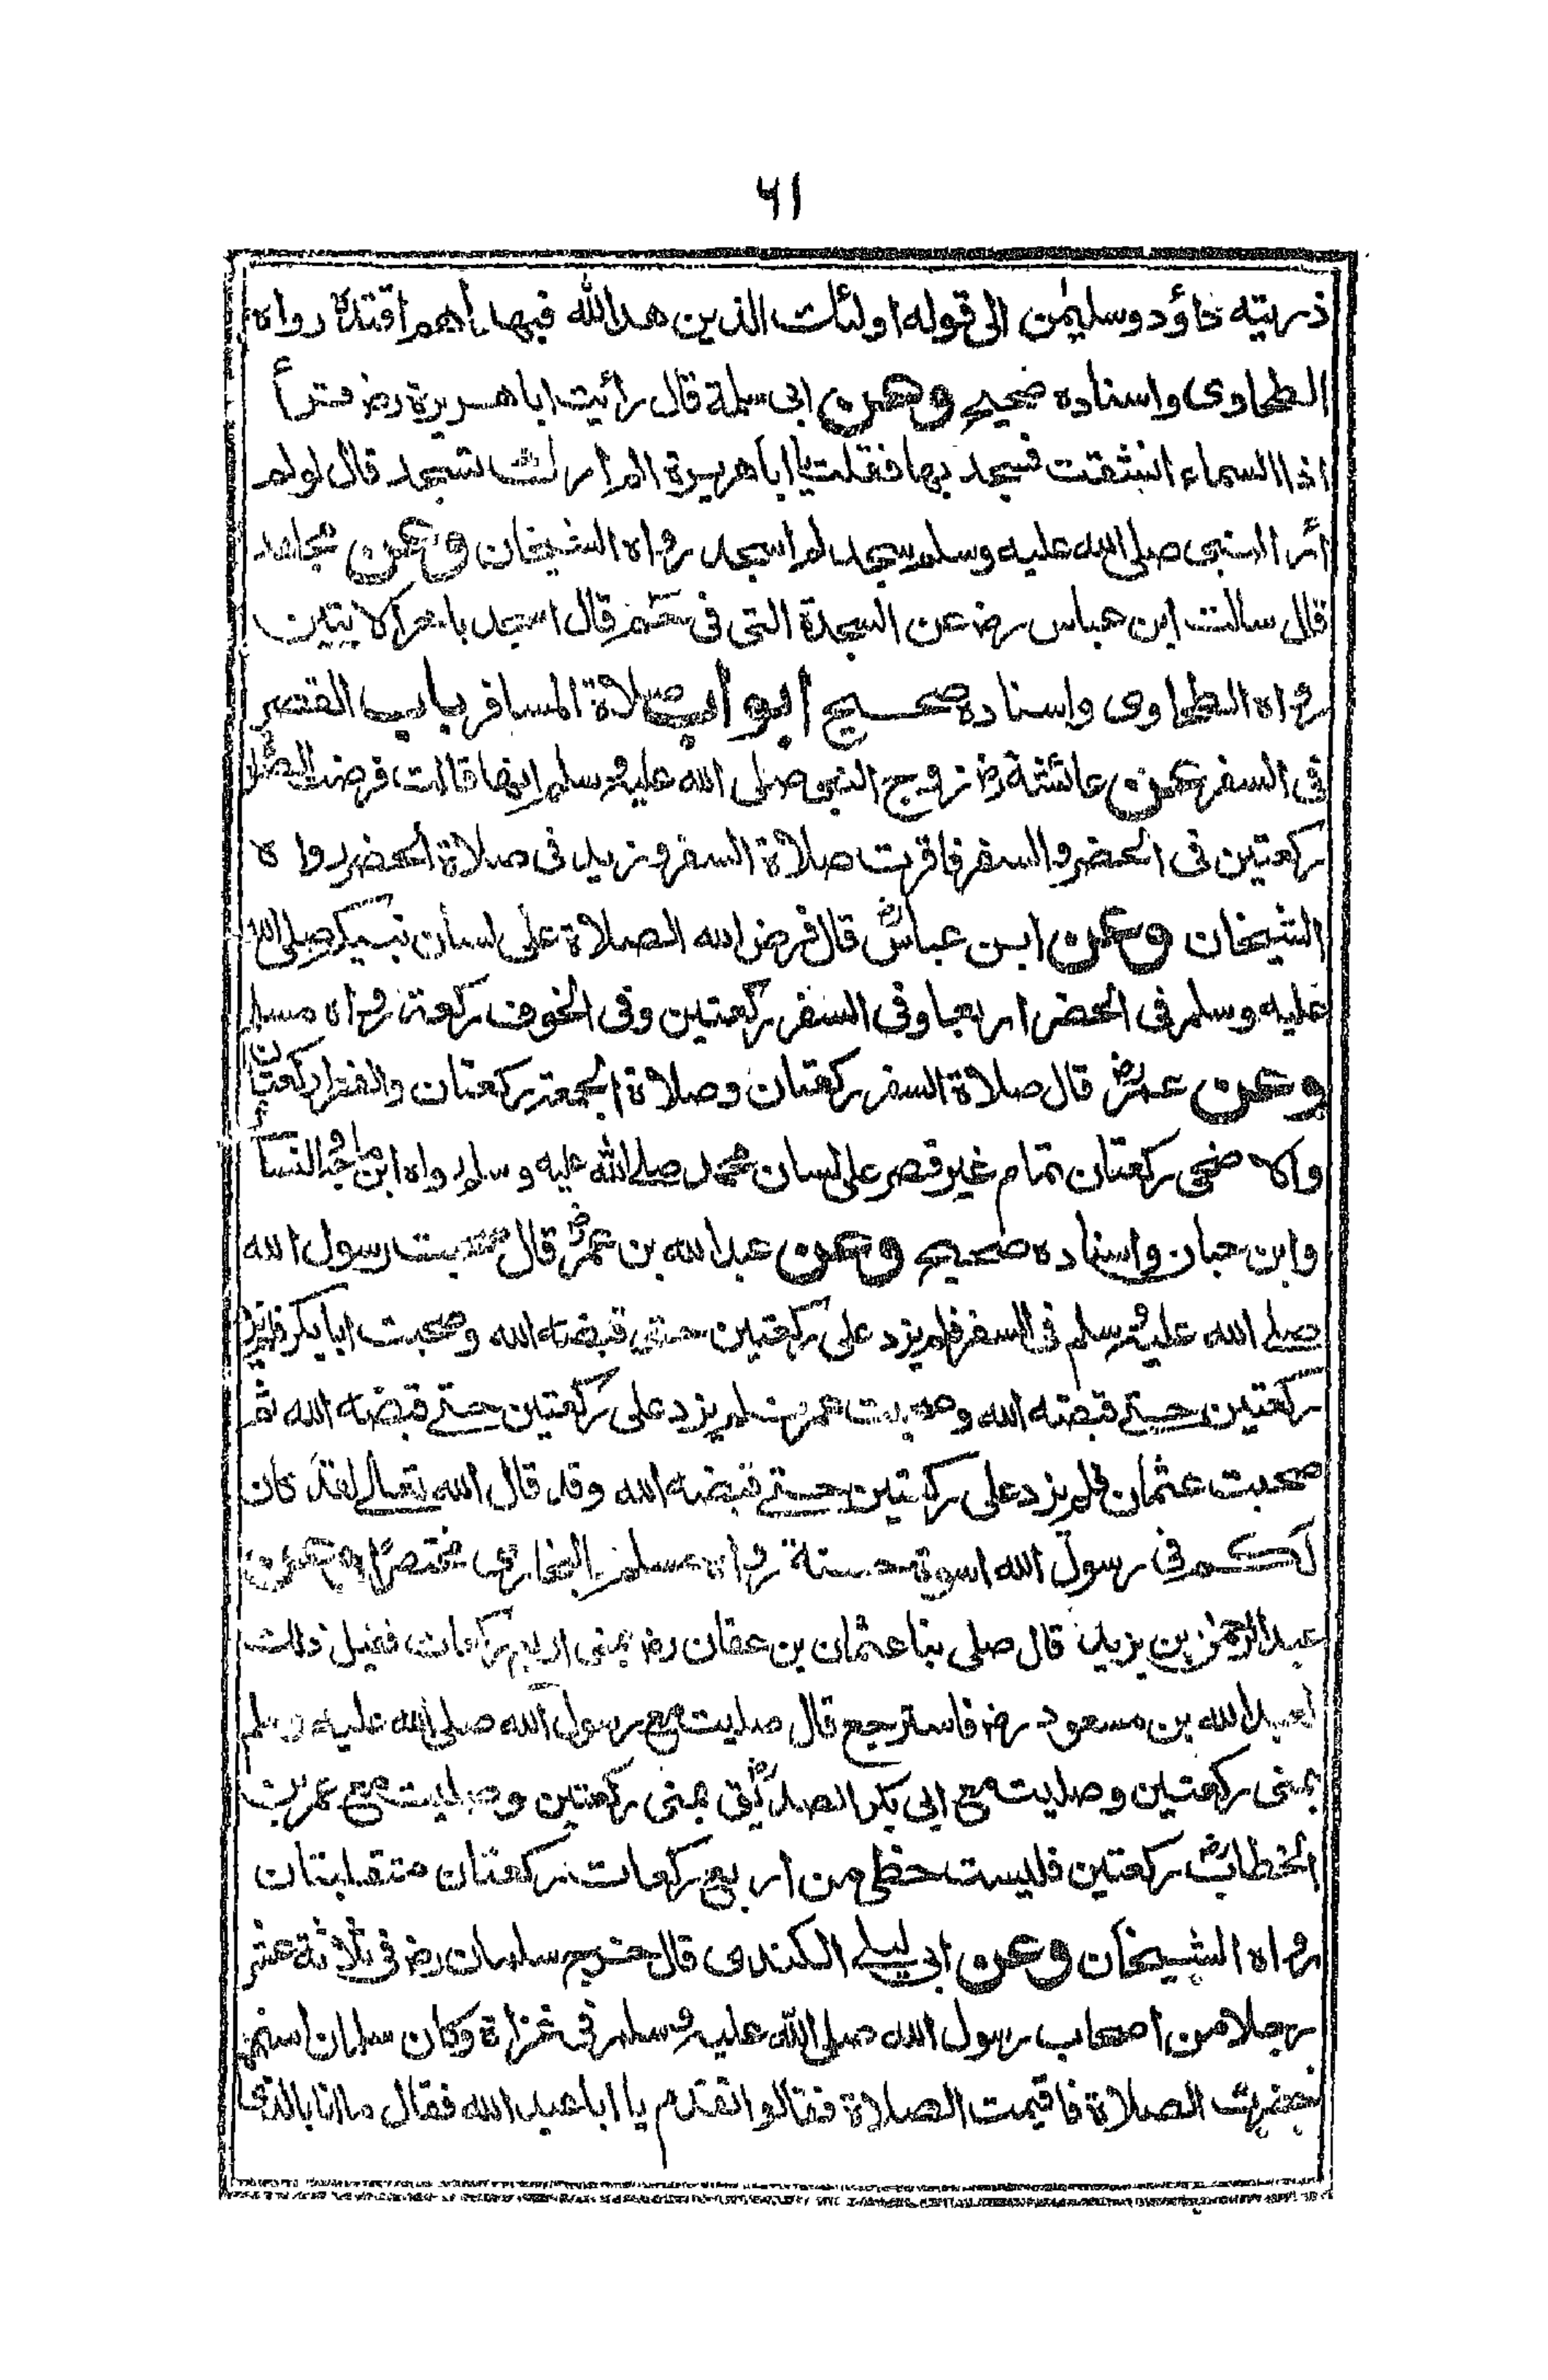 ٦١
ذريته داؤد وسليمٰن الى قوله اولئك الذين هدالله فبهداهم اقتده رواه
الطحاوى واسناده صحيح وعن ابى سلمة قال رأيت اباهريرة رض قرأ
اذا السماء انشقت فسجد بها فقلت يا اباهريرة الم ارك تسجد قال لولم
أر النبى صلى الله عليه وسلم سجد لم اسجد رواه الشيخان وعن مجاهد
قال سالت ابن عباس رض عن السجدة التى فى حٰم قال اسجد باخر الايتين
رواه الطحاوى واسناده صحيح ابواب صلاة المسافر باب القصر
فى السفر عن عائشة رض زوج النبى صلى الله عليه وسلم انها قالت فرضت الصلٰوة
ركعتين فى الحضر والسفر فاقرت صلاة السفر وزيد فى صلاة الحضر رواه
الشيخان وعن ابن عباس رض قال فرض الله الصلاة على لسان نبيكم صلى الله
عليه وسلم فى الحضر اربعا وفى السفر ركعتين وفى الخوف ركعة رواه مسلم
وعن عمر رض قال صلاة السفر ركعتان وصلاة الجمعة ركعتان والفطر ركعتان
والاضحى ركعتان تمام غير قصر على لسان محمد صلى الله عليه وسلم رواه ابن ماجة والنسائى
وابن حبان واسناده صحيح وعن عبدالله بن عمر رض قال صحبت رسول الله
صلى الله عليه وسلم فى السفر فلم يزد على ركعتين حتى قبضه الله وصحبت ابابكر فلم يزد
ركعتين حتى قبضه الله وصحبت عمر فلم يزد على ركعتين حتى قبضه الله ثم
صحبت عثمان فلم يزد على ركعتين حتى قبضه الله وقد قال الله تعالى لقد كان
لكم فى رسول الله اسوة حسنة رواه مسلم والبخارى مختصرا وعن
عبدالرحمٰن بن يزيد قال صلى بنا عثمان بن عفان رض بمنى اربع ركعات فقيل ذلك
لعبدالله بن مسعود رض فاسترجع قال صليت مع رسول الله صلى الله عليه وسلم
بمنى ركعتين وصليت مع ابى بكر الصديق رض بمنى ركعتين وصليت مع عمر بن
الخطاب رض ركعتين فليست حظى من اربع ركعات ركعتان متقبلتان
رواه الشيخان وعن ابى ليلى الكندى قال خرج سلمان رض فى ثلاثة عشر
رجلا من اصحاب رسول الله صلى الله عليه وسلم فى غزاة وكان سلمان اسنهم
فحضرت الصلاة فاقيمت الصلاة فقالوا تقدم يا اباعبدالله فقال ما انا بالذى